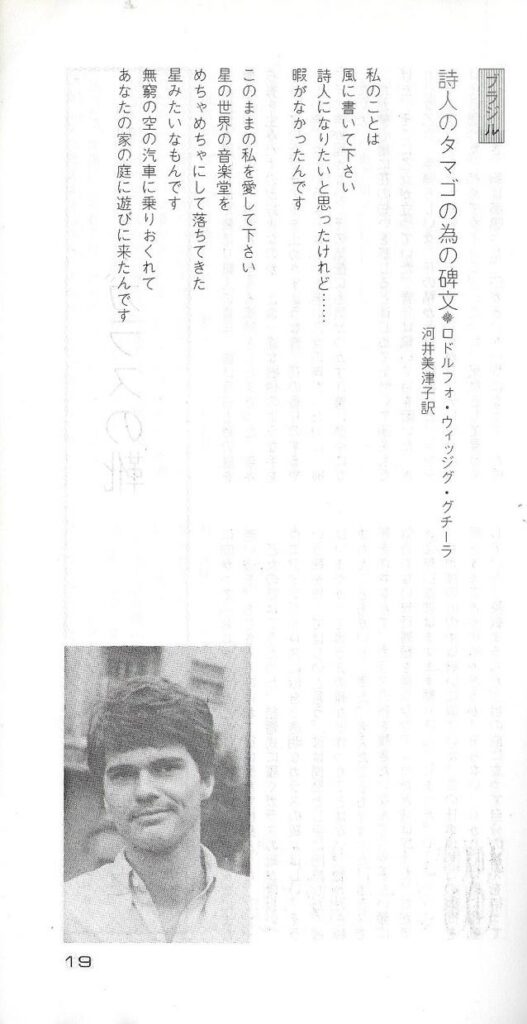 ブラジル
詩人のタマゴの為の碑文❉ロドルフォ・ウィッジグ・グチーラ
河井美津子訳
私のことは
風に書いて下さい
詩人になりたいと思ったけれど……
暇がなかったんです
このままの私を愛して下さい
星の世界の音楽堂を
めちゃめちゃにして落ちてきた
星みたいなもんです
無窮の空の汽車に乗りおくれて
あなたの家の庭に遊びに来たんです
19